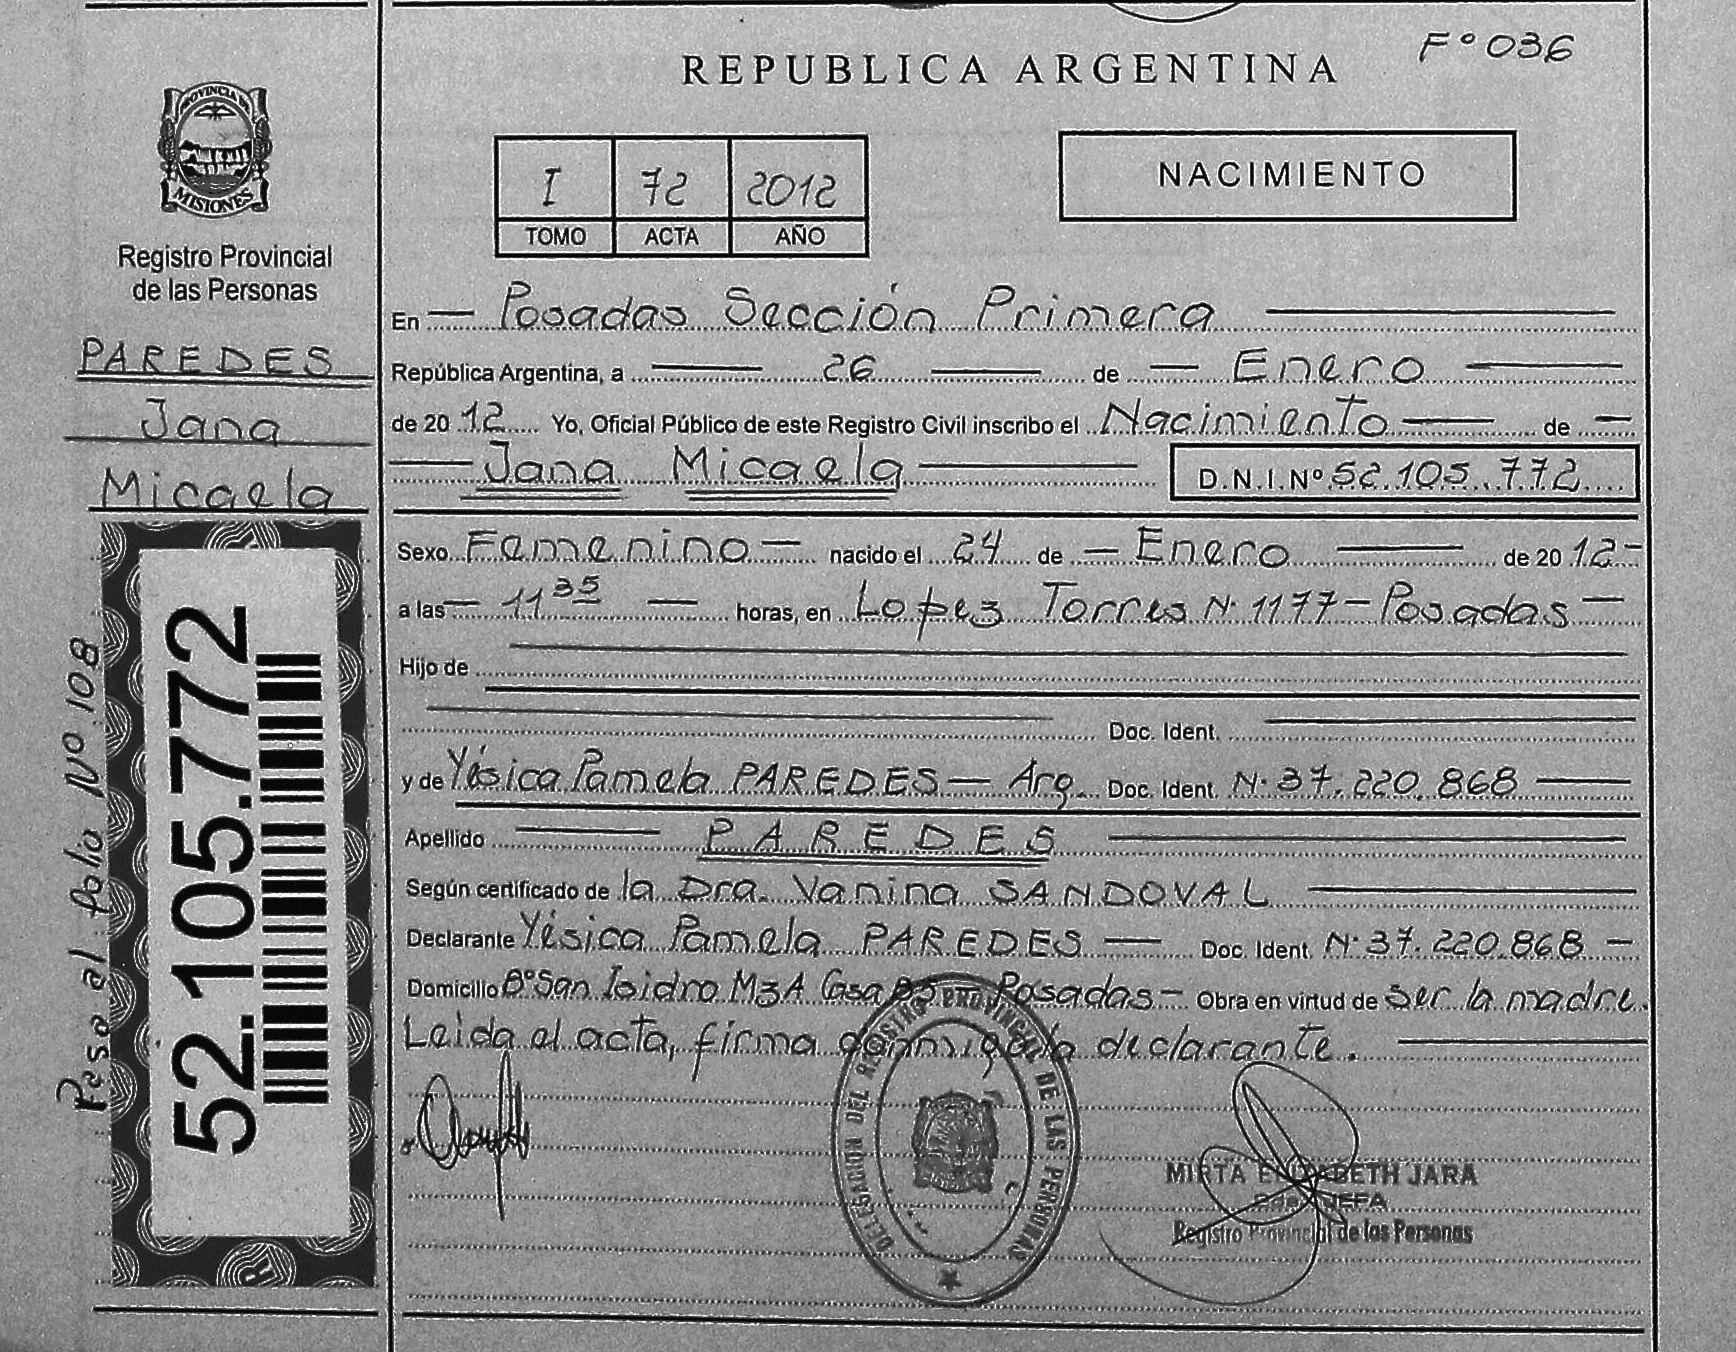 F° 036
REPUBLICA ARGENTINA
PROVINCIA DE
MISIONES
Registro Provincial
de las Personas
PAREDES
Jana
Micaela
52.105.772
Pasa al folio Nº 108
I 72 2012
TOMO ACTA AÑO
NACIMIENTO
En Posadas Sección Primera
República Argentina, a 26 de Enero
de 2012 Yo, Oficial Público de este Registro Civil inscribo el Nacimiento de
Jana Micaela D.N.I.Nº 52.105.772
Sexo Femenino nacido el 24 de Enero de 2012
a las 11 35 horas, en Lopez Torres N. 1177 - Posadas
Hijo de
Doc. Ident.
y de Yésica Pamela PAREDES - Arg. Doc. Ident. N. 37.220.868
Apellido PAREDES
Según certificado de la Dra. Vanina SANDOVAL
Declarante Yésica Pamela PAREDES Doc. Ident. N. 37.220.868
Domicilio B° San Isidro MzA Casa - Posadas - Obra en virtud de ser la madre.
Leida el acta, firma conmigo la declarante.
DELEGACION DEL REGISTRO PROVINCIAL DE LAS PERSONAS
MIRTA ELIZABETH JARA
JEFA
Registro Provincial de las Personas